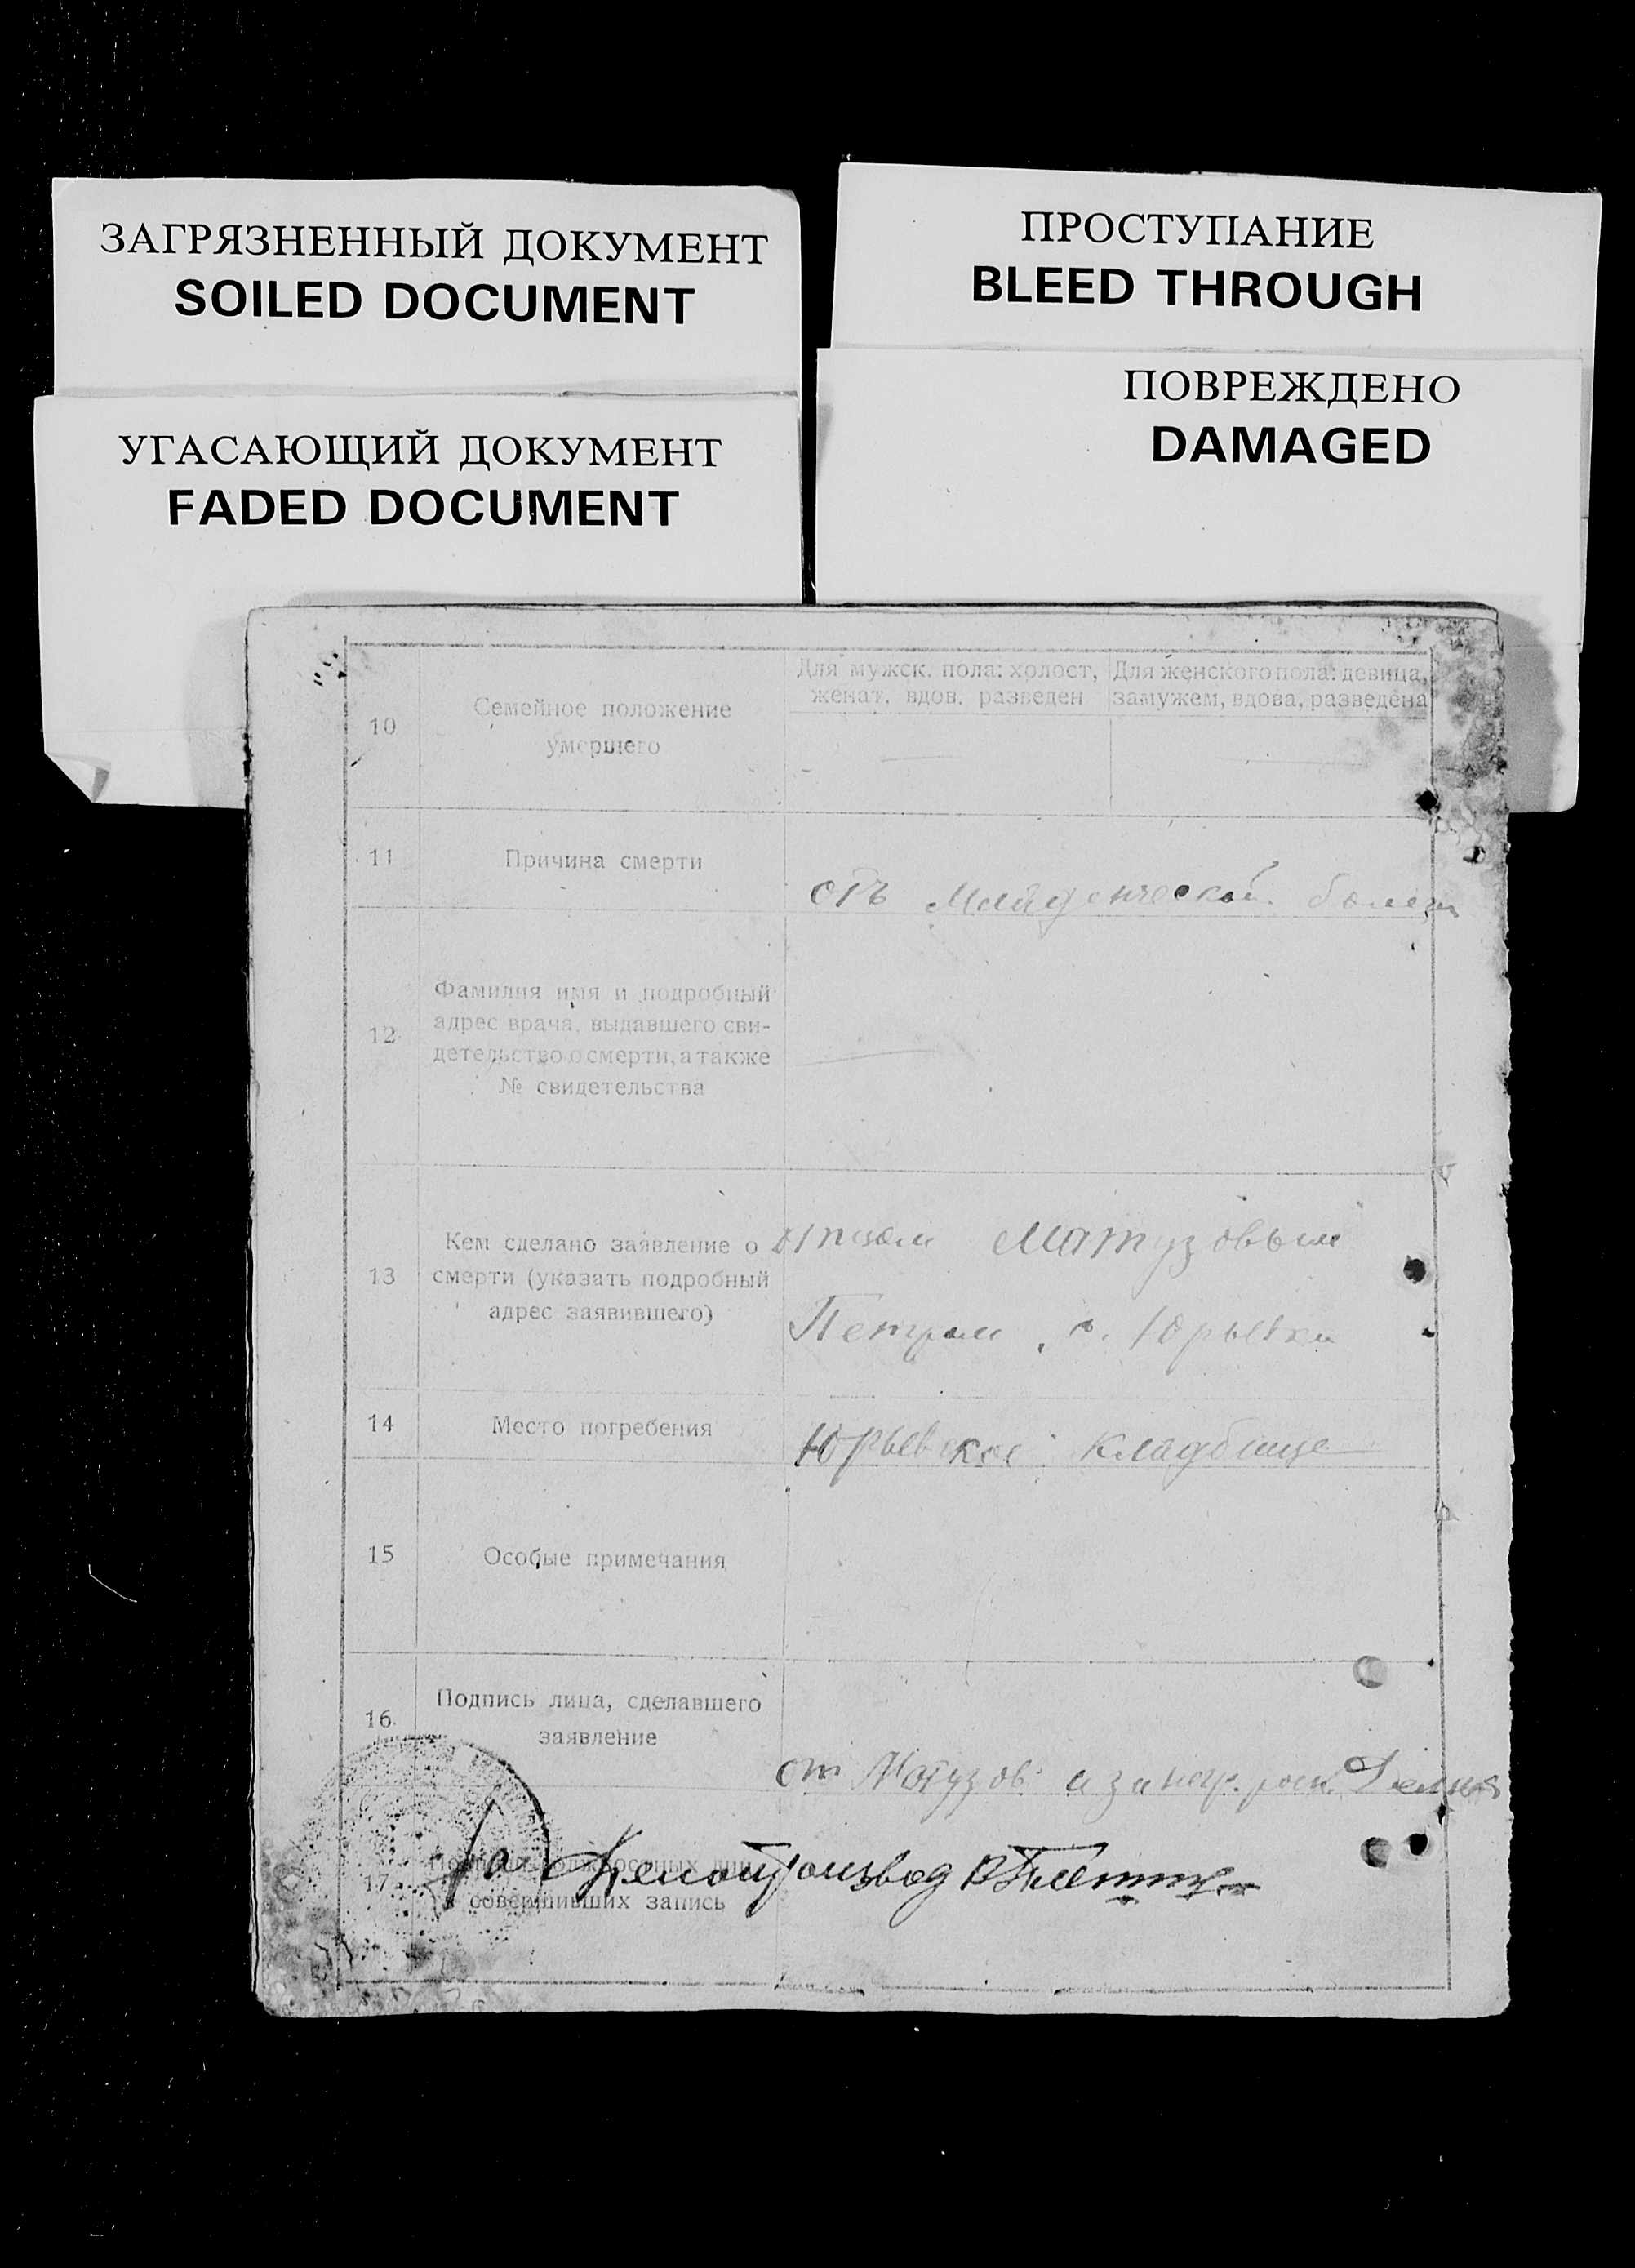 ЗАГРЯЗНЕННЫЙ ДОКУМЕНТ
SOILED DOCUMENT
ПРОСТУПАНИЕ
BLEED THROUGH
УГАСАЮЩИЙ ДОКУМЕНТ
FADED DOCUMENT
ПОВРЕЖДЕНО
DAMAGED
10
Семейное положение
умершего
Для мужск. пола: холост,
женат, вдов, разведен
Для женского пола: девица,
замужем, вдова, разведена
11
Причина смерти
отъ Младенческой
12
Фамилия имя и подробный
адрес врача, выдавшего сви-
детельство о смерти, а также
№ свидетельства
13
Кем сделано заявление о
смерти (указать подробный
адрес заявившего)
отцом Матузовым
Петром, с. Юрьевки
14
Место погребения
Юрьевское кладбище
15
Особые примечания
16
Подпись лица, сделавшего
заявление
от Матузов а за негр.
17
совершивших запись
За Делопроизвод